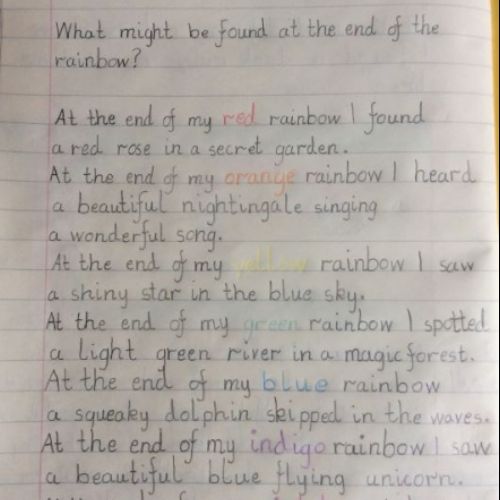 What might be found at the end of the
rainbow?
At the end of my red rainbow I found
a red rose in a secret garden.
At the end of my orange rainbow I heard
a beautiful nightingale singing
a wonderful song.
At the end of my yellow rainbow I saw
a shiny star in the blue sky.
At the end of my green rainbow I spotted
a light green river in a magic forest.
At the end of my blue rainbow
a squeaky dolphin skipped in the waves.
At the end of my indigo rainbow I saw
a beautiful blue flying unicorn.